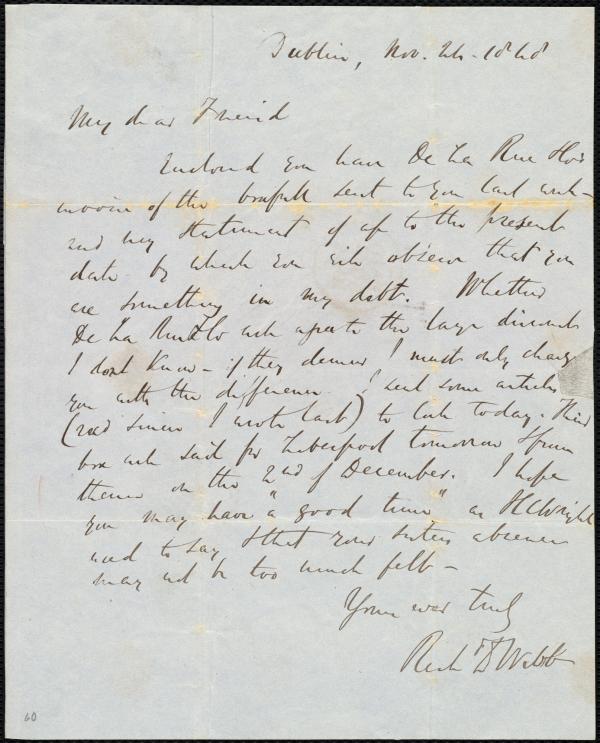 Dublin, Nov. 24 - 1848
My dear Friend
Enclosed you have De La Rue &Co's
invoice of the sent to you last week -
and my statement of a/c up to the present
date by which you will observe that you
are something in my debt. Whether
De La Rue &Co will agree to the large discount
I dont know - if they demur I must only charge
you with the difference. I sent some articles
(recd since I wrote last) to today. Their
box will sail for Liverpool tomorrow & from
thence on the 2nd of December. I hope
you may have "a good time" as HCWright
used to say & that your sisters absence
may not be too much felt -
Yours ever truly
Richd D Webb
60